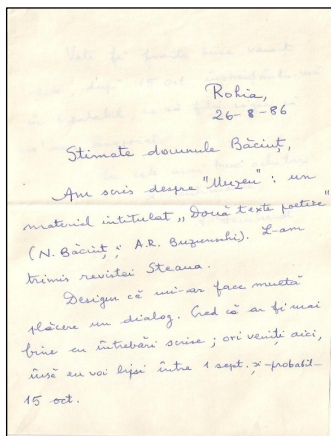 Rohia,
26-8-86
Stimate domnule Băciuț,
Am scris despre "Muzeu": un
material intitulat „Două texte poetice"
(N. Băciuț; A.R. Buzunski). L-am
trimis revistei Steaua.
Desigur că mi-ar face multă
plăcere un dialog. Cred că ar fi mai
bine cu întrebări scrise; ori veniți aici,
însă eu voi lipsi între 1 sept. și - probabil -
15 oct.